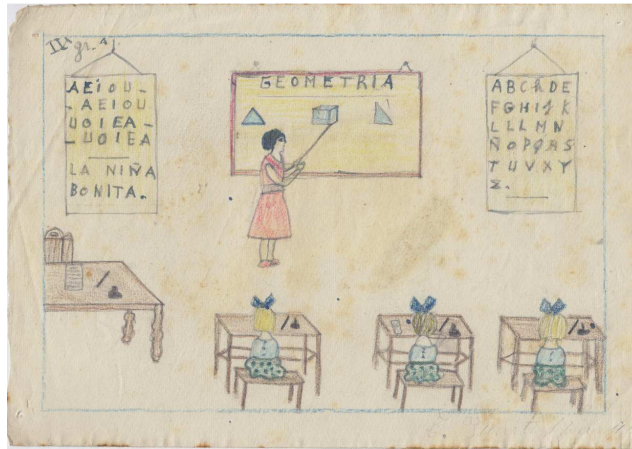 gr.
AEIOU-
-AEIOU
UOIEA-
-UOIEA
LA NIÑA
BONITA.
GEOMETRIA
ABCHDE
FGHIJK
LLLMN
ÑOPQRS
TUVXY
Z.